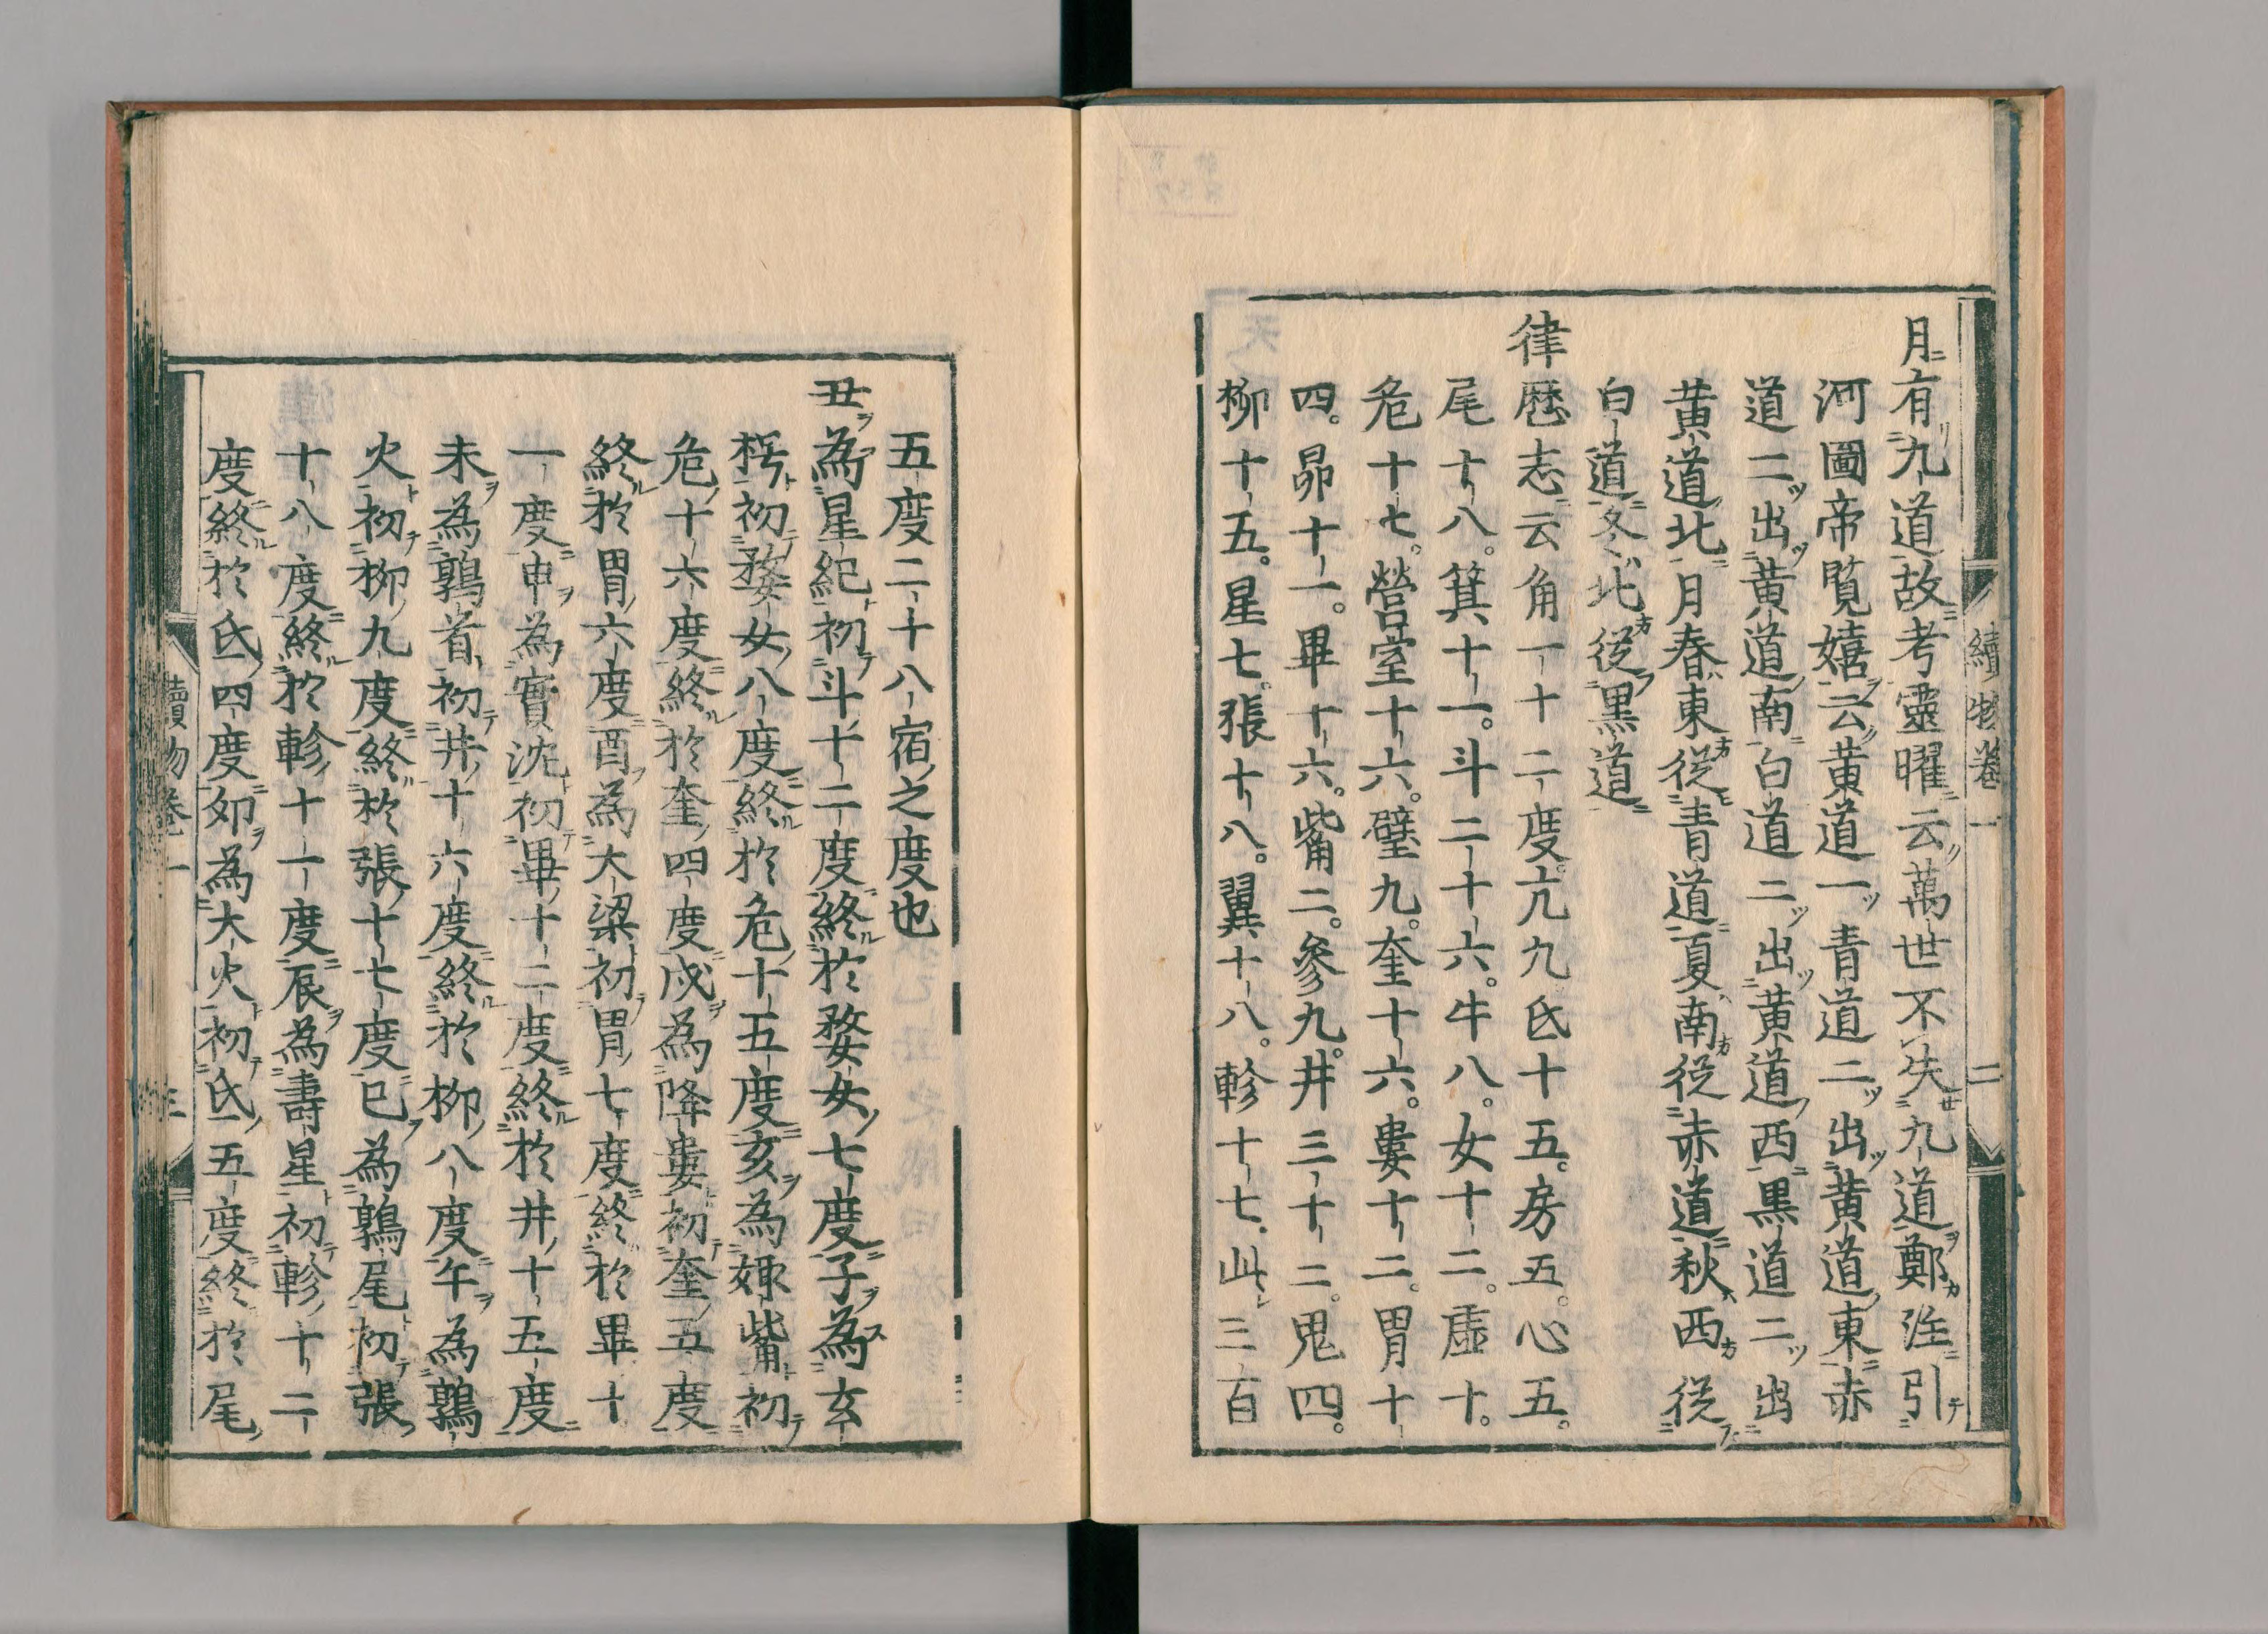 月有九道故考靈曜云萬世不失九道鄭注引
河圖帝覧嬉云黄道一青道二出黄道東赤
道二出黄道南白道二出黄道西黒道二出
黄道北月春東従青道夏南従赤道秋西従
白道冬北従黒道
律暦志云角一十二度。亢九氐十五。房五。心五。
尾十八。箕十一。斗二十六。牛八。女十二。虚十。
危十七。營室十六。壁九。奎十六。婁十二。胃十
四。昴十一。畢十六。觜二。參九。井三十二。鬼四。
柳十五。星七。張十八。翼十八。軫十七。此三百
續物卷一
二
五度二十八宿之度也
丑為星紀初斗十二度終於婺女七度子為玄
枵初婺女八度終於危十五度亥為娵觜初
危十六度終於奎四度戌為降婁初奎五度
終於胃六度酉為大梁初胃七度終於畢十
一度申為實沈初畢十二度終於井十五度
未為鶉首初井十六度終於柳八度午為鶉
火初柳九度終於張十七度巳為鶉尾初張
十八度終於軫十一度辰為壽星初軫十二
度終於氐四度夘為大火初氐五度終於尾
續物卷一
三